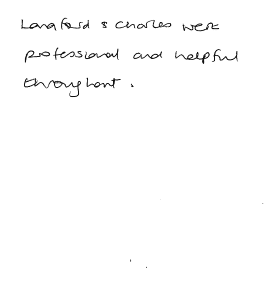 Langford & Charles were
professional and helpful
throughout.